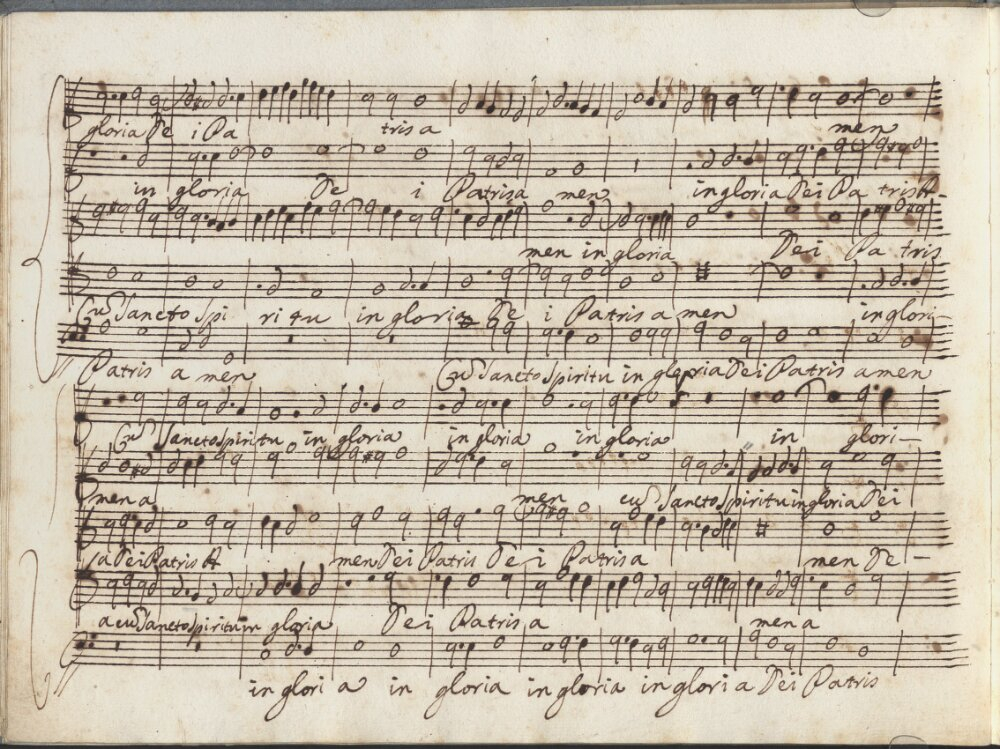 gloria De i Pa tris a men
in gloria De i Patris a men in gloria Dei Pa tris A-
men in gloria Dei Pa tris
Cu Sancto Spi ri tu in gloria De i Patris a men in glori-
Patris a men Cu Sancto Spiritu in gloria Dei Patris amen
Cu Sancto Spiritu in gloria in gloria in gloria in glori-
men a men cu Sancto Spiritu in gloria Dei
a Dei Patris A men Dei Patris De i Patris a men De-
a cu Sancto Spiritu in gloria Dei Patris a men a
in glori a in gloria in gloria in glori a Dei Patris